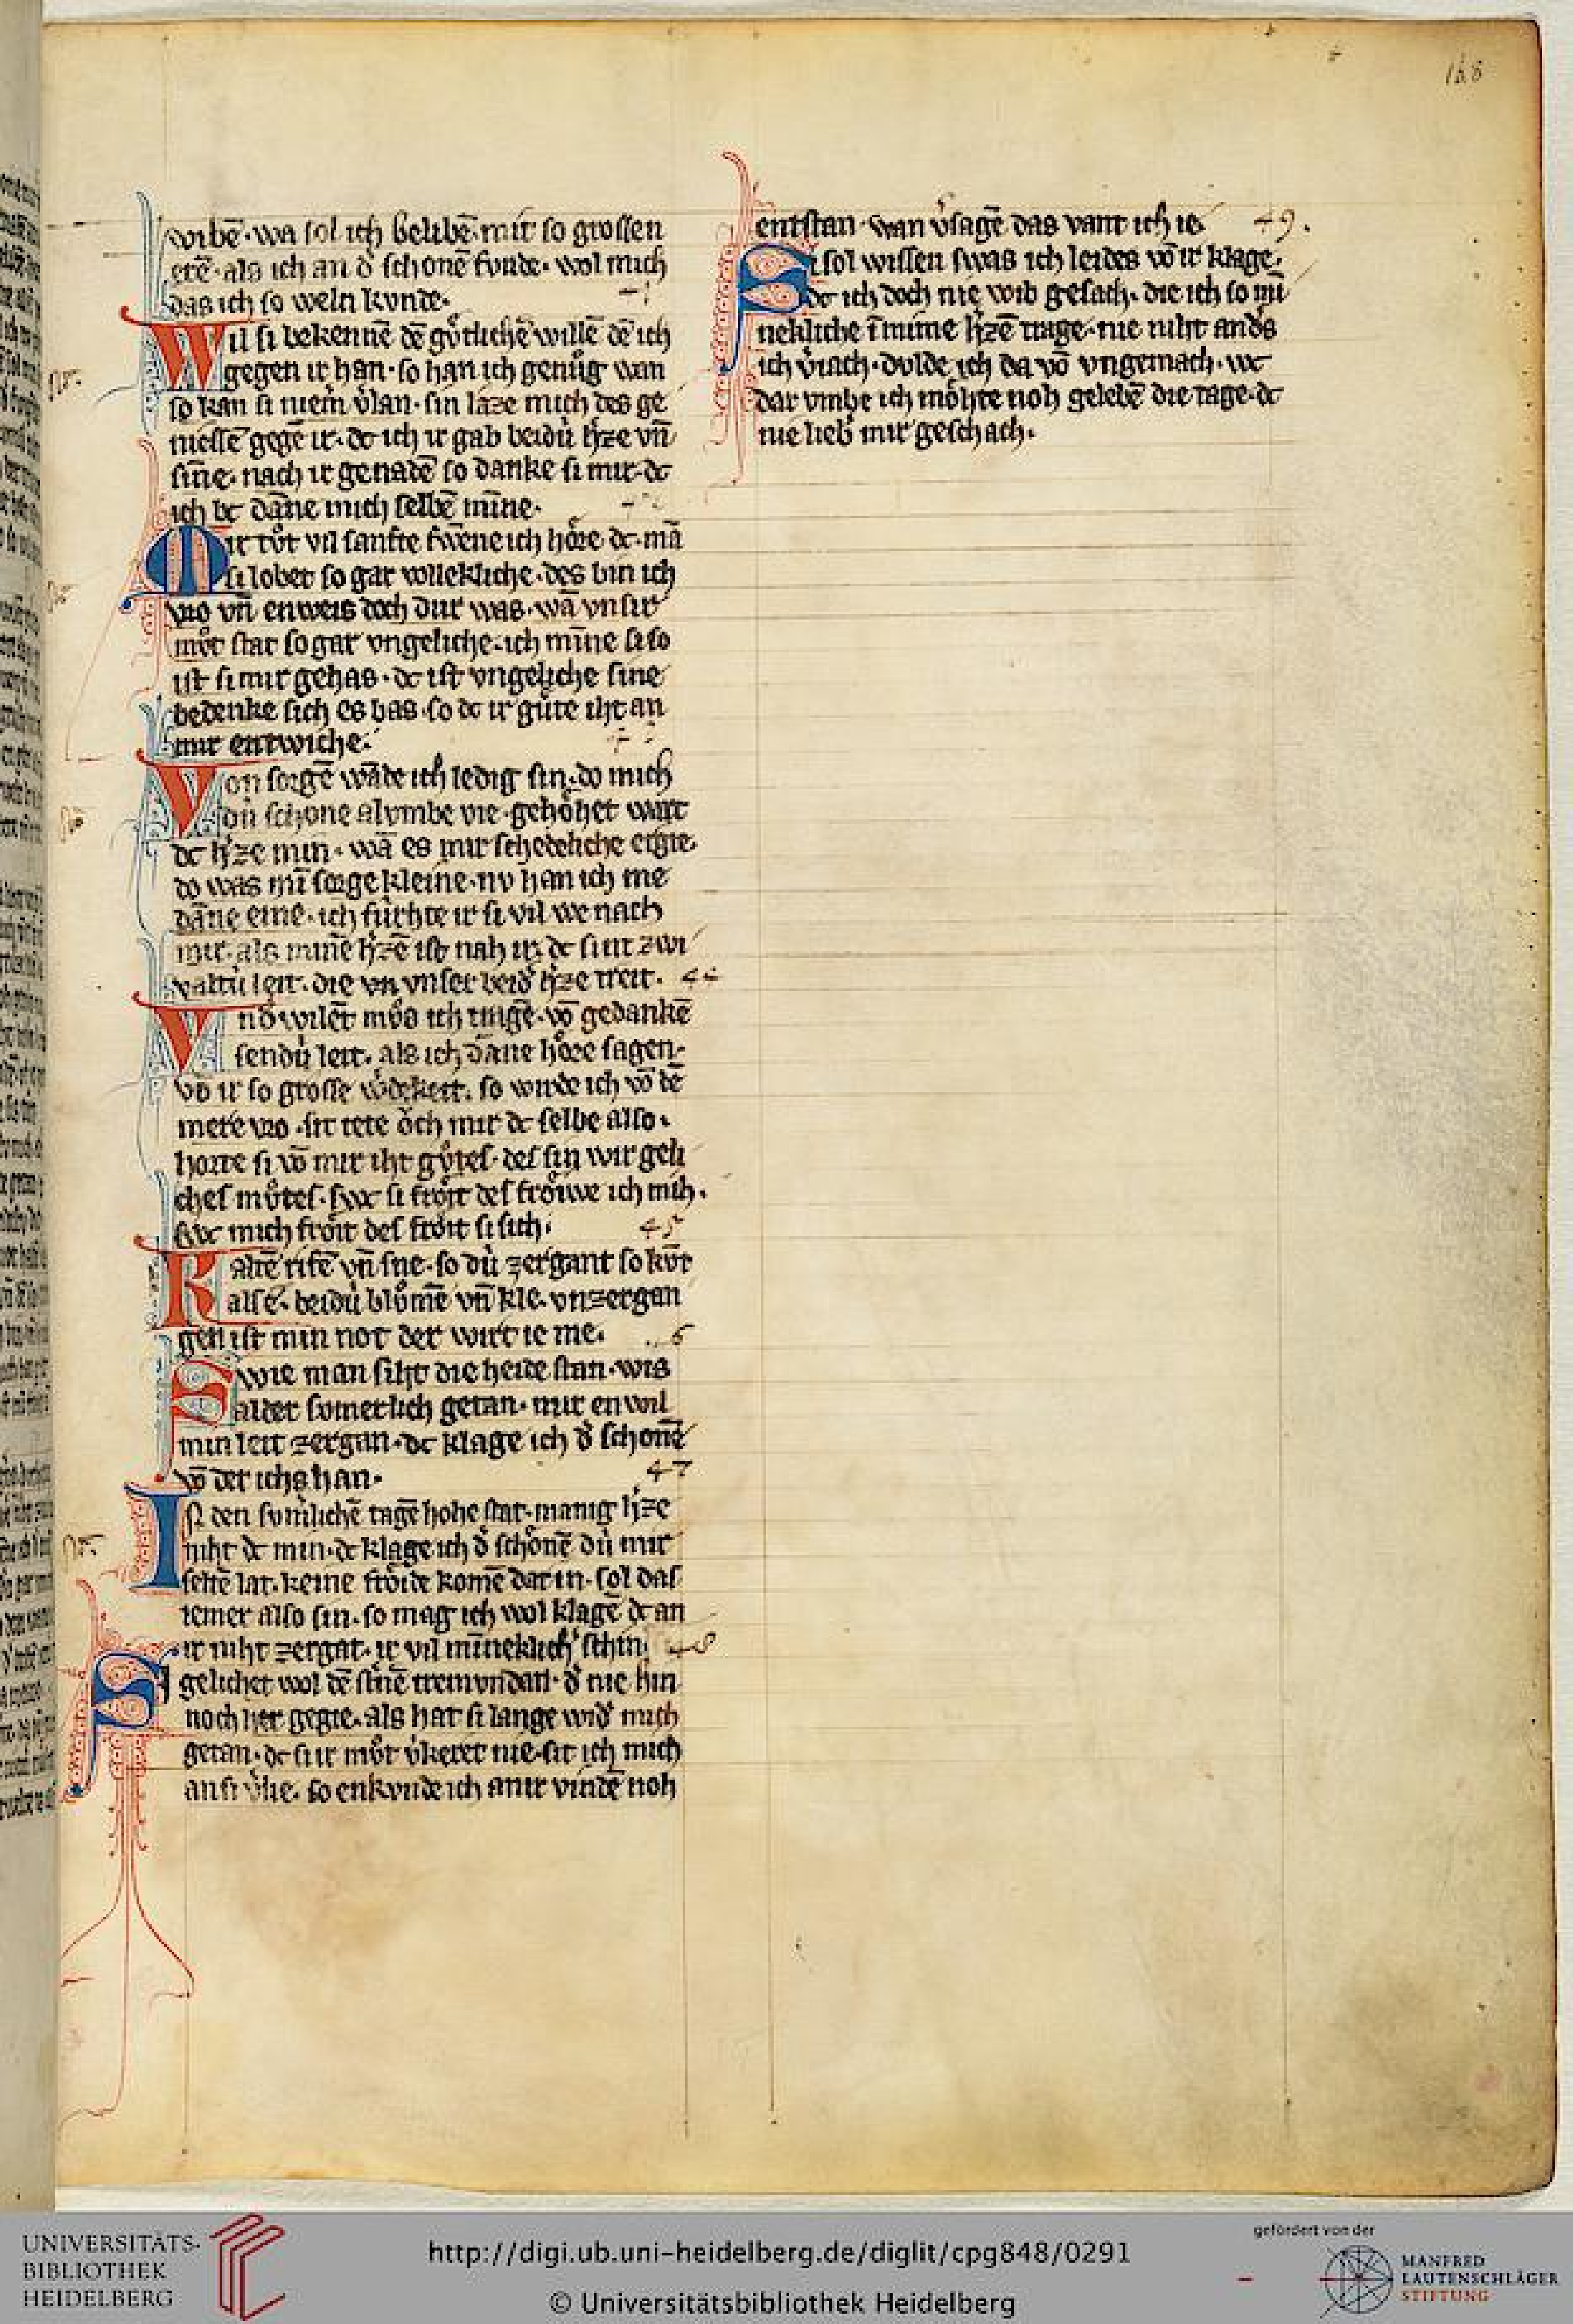 148
wibē · wa sol ich belibē · mit so grossen
erē · als ich an d̾ schonē funde · wol mich
das ich so weln kvnde ·
Wil si bekennē dē gͤtlichē willē dē ich
gegen ir han · so han ich genůg wan
so kan si niem̄ v̾lan · sin laze mich des ge
niessē gegē ir · dc ich ir gab beidú h̾ze vn̄
sin̄e · nach ir genadē so danke si mir · dc
ich dc dan̄e mich selbē min̄e ·
Mir tůt vil sanfte swen̄e ich hôre dc · mā
si lobet so gar vollekliche · des bin ich
vro vn̄ enweis doch dur was · wā vnser
můt stat so gar vngeliche · ich min̄e si so
ist si mir gehas · dc ist vngeliche sine
bedenke sich es bas · so dc ir gůte iht an
mir entwiche ·
Von sorgē wāde ich ledig sin · do mich
dú schone al vmbe vie · gehôhet wart
dc h̾ze min · wā es mir schedeliche ergie ·
do was mī sorge kleine · nv han ich me
dan̄e eine · ich fúrhte ir si vil we nach
mir · als minē h̾zē ist nah ir · dc sint zwi
valtú leit · die vn vnser beid̾ h̾ze treit · 44
Vnd̾wilēt můs ich ringē · vō gedankē
sendú leit · als ich dan̄e hôre sagen ·
vō ir so grosse w̾dekeit · so wirde ich vō dē
mere vro · sit tete ôch mir dc selbe also ·
horte si vō mir iht gůtes · des sin wir geli
ches můtes · swc si frôit des frôiwe ich mih ·
swc mich frôit des frôit si sich · 45
Kaltē rifē vn̄ sne · so dú zergant so kvt
als e · beidú blůmē vn̄ kle · vnzergan
gen ist min not der wirt ie me ·
Swie man siht die heide stan · wis
alder somerlich getan · mir en wil
min leit zergan · dc klage ich d̾ schonē
vō der ichs han · 47
In den sum̾lichē tagē hohe stat · manig h̾ze
niht dc min · dc klage ich d̾ schonē dú mir
seltē lat · keine frôide komē dar in · sol das
iemer also sin · so mag ich wol klagē dc an
ir niht zergat · ir vil min̄eklich̾ schin 48
Si gelichet wol dē st̾nē tremvndan · d̾ nie hin
noch her gegie · als hat si lange wid̾ mich
getan · dc si ir můt v̾keret nie · sit ich mich
an si v̾lie · so enkvnde ich an ir vindē noh
entstan · wan v̾sagē das vant ich ie 49 .
Si sol wissen swas ich leides vō ir klage ·
dc ich doch nie wib gesach · die ich so mī
nekliche ī mime h̾zē trage · nie niht and̾s
ich v̾iach · dulde ich da vō vngemach · wc
dar vmbe ich môhte noh gelebē die tage · dc
nie lieb̾ mir geschach ·
UNIVERSITÄTS-
BIBLIOTHEK
HEIDELBERG
http://digi.ub.uni-heidelberg.de/diglit/cpg848/0291
© Universitätsbibliothek Heidelberg
gefördert von der
MANFRED
LAUTENSCHLÄGER
STIFTUNG